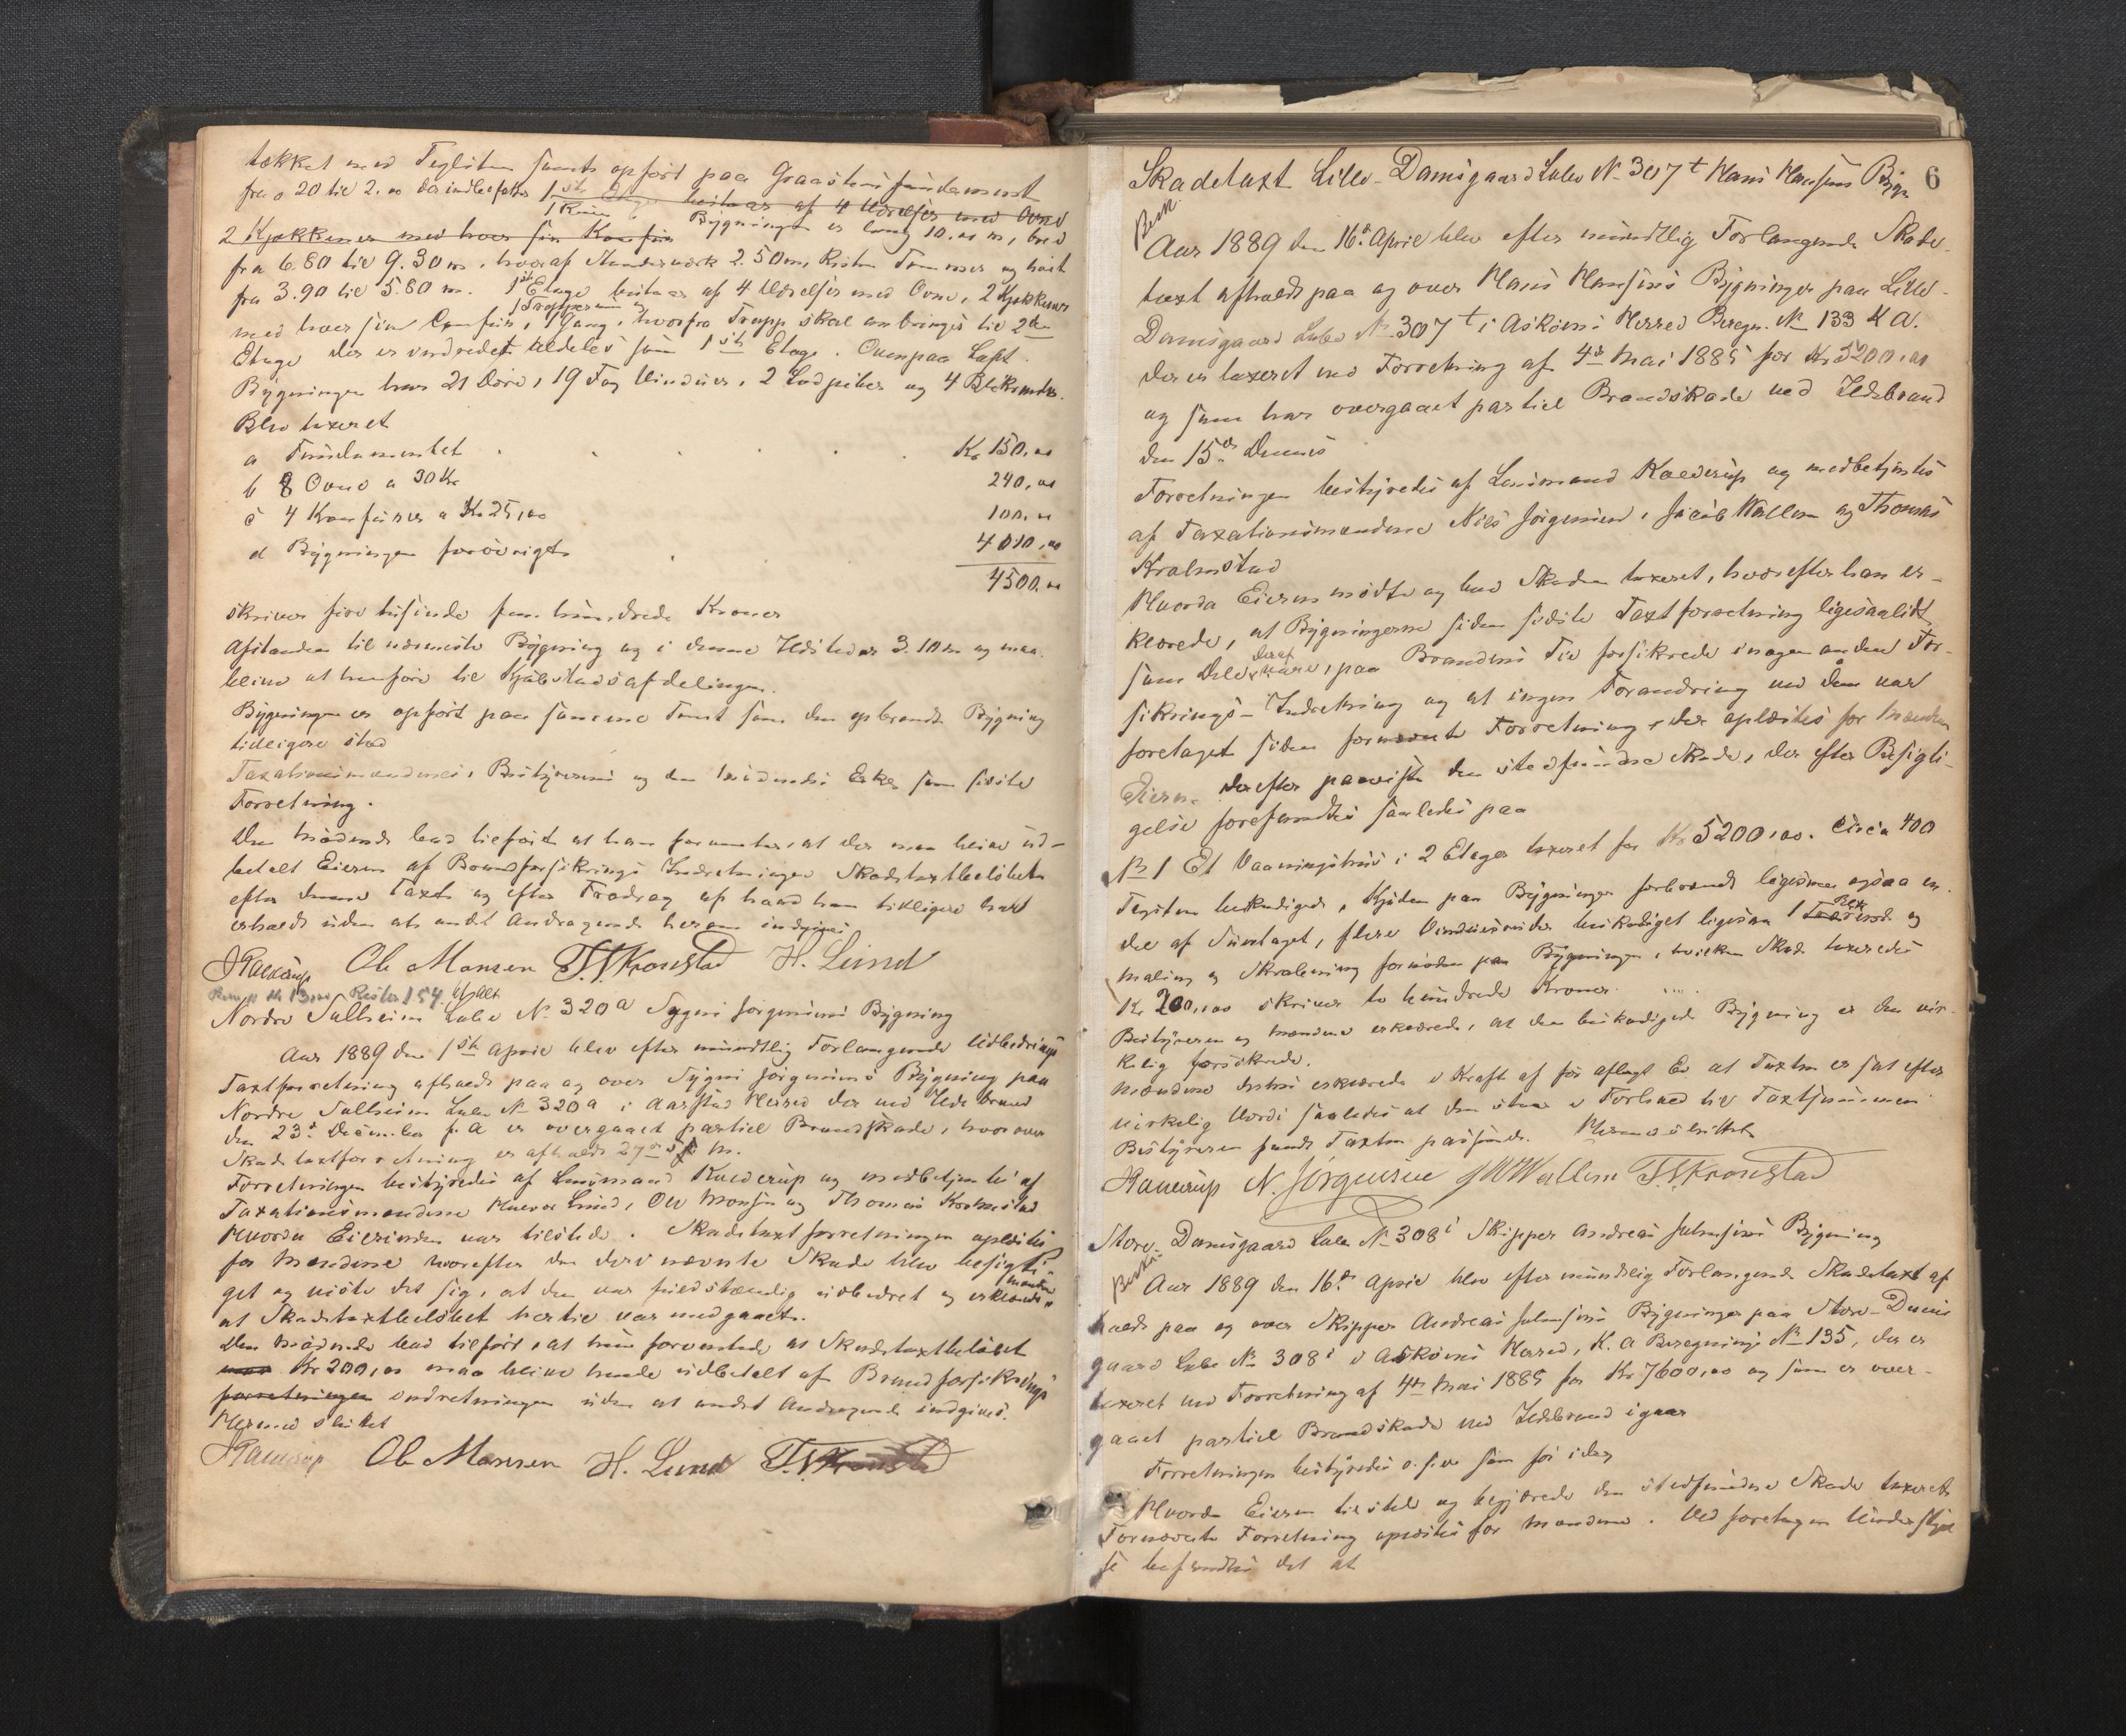 tækket med Teglsten samt opført paa Graastensfundament
fra 0 20 til 2.00 der indbefatter 1ste Etage bestaar af 4 Værelser med Ovne
2 Kjøkkener med hver sin Komfur 1 Rum Bygningen er lang 10.00 m, bred
fra 6.80 til 9.30 m, hvoraf Muurværk 2.50 m, Resten Tømmer og høit
fra 3.90 til 5.80 m. 1ste Etage bestaar af 4 Værelser med Ovne, 2 Kjøkkener
med hver sin Comfur, 1 Trapperum 1 Gang, hvorfra Trapp skal anbringes til 2den
Etage der er indredet ligeledes som 1ste Etage. Ovenpaa Loft.
Bygningen har 21 Døre, 19 Fag Vinduer, 2 Ludpiber og 4 Blikrender.
Blev taxeret
a Fundamentet Kr 150,00
b 8 Ovne a 30 Kr 240,00
c 4 Komfurer a Kr 25,00 100,00
d Bygningen forøvrigt 4010,00
4500,00
skriver fire tusinde fem hundrede Kroner
Afstanden til nærmeste Bygning og i denne Ildsted er 3.10 m og maa
blive at henføre til Kjøbstadsafdelingen.
Bygningen er opført paa samme Tomt som den opbrændte Bygning
tidligere stod
Taxationsmændenes, Bestyrerens og den mødendes Erkl. som sidste
Forretning.
Den mødende bad tilført at han formenter, at der maa blive ud-
betalt Eieren af Brandforsikrings Indretningen Skadetaxtbeløbet
efter denne Taxt og efter Fradrag af hvad han tidligere har
erholdt uden at andet Andragende herom indgives
Kaldrup Ole Monsen T. S. Kronstad H. Lund
Nordre Solheim Løbe No 320a Sygni Jørgensens Bygning
Aar 1889 den 1ste April blev efter mundtlig Forlangende Udbedrings
Taxtforretning afholdt paa og over Sygni Jørgensens Bygning paa
Nordre Solheim Løbe No 320a i Aarstad Herred der ved Ildebrand
den 23de December f. A er overgaaet partiel Brandskade, hvorover
Skadetaxtforretning er afholdt 27de s. M.
Forretningen bestyredes af Lensmand Kaldrup og medbetjentes af
Taxationsmændene Halvor Lund, Ole Monsen og Thomas Kronstad
Hvorda Eierinden var tilstede. Skadetaxtforretningen oplæstes
for Mændene hvorefter den deri nævnte Skade blev besigti-
get og viste det sig, at den var fuldstændig udbedret og erklærede Mændene
at Skadetaxtbeløbet hertil var medgaaet.
Den mødende bad tilført, at hun formente at Skadetaxtbeløbet
Kr 200,00 maa blive hende udbetalt af Brandforsikrings
forretningen indretningen uden at andet Andragende indgives.
Hermed sluttet
Kaldrup Ole Monsen H. Lund T. S. Kronstad
6
Skadetaxt Lille-Damsgaard Løbe No 307t Hans Hansens Bygn
Besk.
Aar 1889 den 16de April blev efter mundtlig Forlangende Skade-
taxt afholdt paa og over Hans Hansens Bygninger paa Lille-
Damsgaard Løbe No 307t i Askøens Herred Beregn. No 133 K A.
der er taxeret ved Forretning af 4de Mai 1885 for Kr 5200,00
og som har overgaaet partiel Brandskade ved Ildebrand
den 15de Dennes
Forretningen bestyredes af Lensmand Kaldrup og medbetjentes
af Taxationsmændene Nils Jørgensen, Jacob Wallem og Thomas
Kronstad
Hvorda Eieren mødte og bad Skaden taxeret, hvorefter han er-
klærede, at Bygningerne siden sidste Taxtforretning ligesaalidt
som Dele deraf, paa Brandens Tid forsikrede i nogen anden For-
sikrings-Indretning og at ingen Forandring med dem var
foretaget siden fornævnte Forretning, der oplæstes for Mændene
Eieren derefter paaviste den stedfundne Skade, der efter Besigti-
gelse forefandtes saaledes paa
No 1 Et Vaaningshus i 2 Etager taxeret for Kr 5200,00. Circa 400
Tegsten beskadiget, Hjørnen paa Bygningen forbrændt ligesom ogsaa en
del af Suntaget, flere Vinduesruder beskadiget ligesaa 1
maling og Skrabning fornøden paa Bygningen, hvilken Skade taxeredes
Kr 200,00 skriver to hundrede Kroner.
Bestyreren og Mændene erklærede, at den beskadigede Bygning er den vir-
kelig forsikrede.
Mændene dernæst erklærede i Kraft af før aflagt Ed at Taxten er sat efter
virkelig Værdi saaledes at den staar i Forhold til Taxtsummen
Bestyreren fandt Taxten passende. Hermed sluttet
Kaldrup N. Jørgensen J W Wallem T. S. Kronstad
Store-Damsgaard Løbe No 308i Skipper Andreas Johnsens Bygning
Besk.
Aar 1889 den 16de April blev efter mundtlig Forlangende Skadetaxt af
holdt paa og over Skipper Andreas Johnsens Bygninger paa Store-Dams
gaard Løbe No 308i i Askøens Herred, K. A Beregnings No 135, der er
taxeret ved Forretning af 4de Mai 1885 for Kr 7600,00 og som er over-
gaaet partiel Brandskade ved Ildebrand igaar
Forretningen bestyredes o.s.v. som før idag
Hvorda Eieren tilstede og begjærede den stedfundne Skade taxeret
Fornævnte Forretning oplæstes for Mændene. Ved foretagen Undersøgel
se befandtes det at